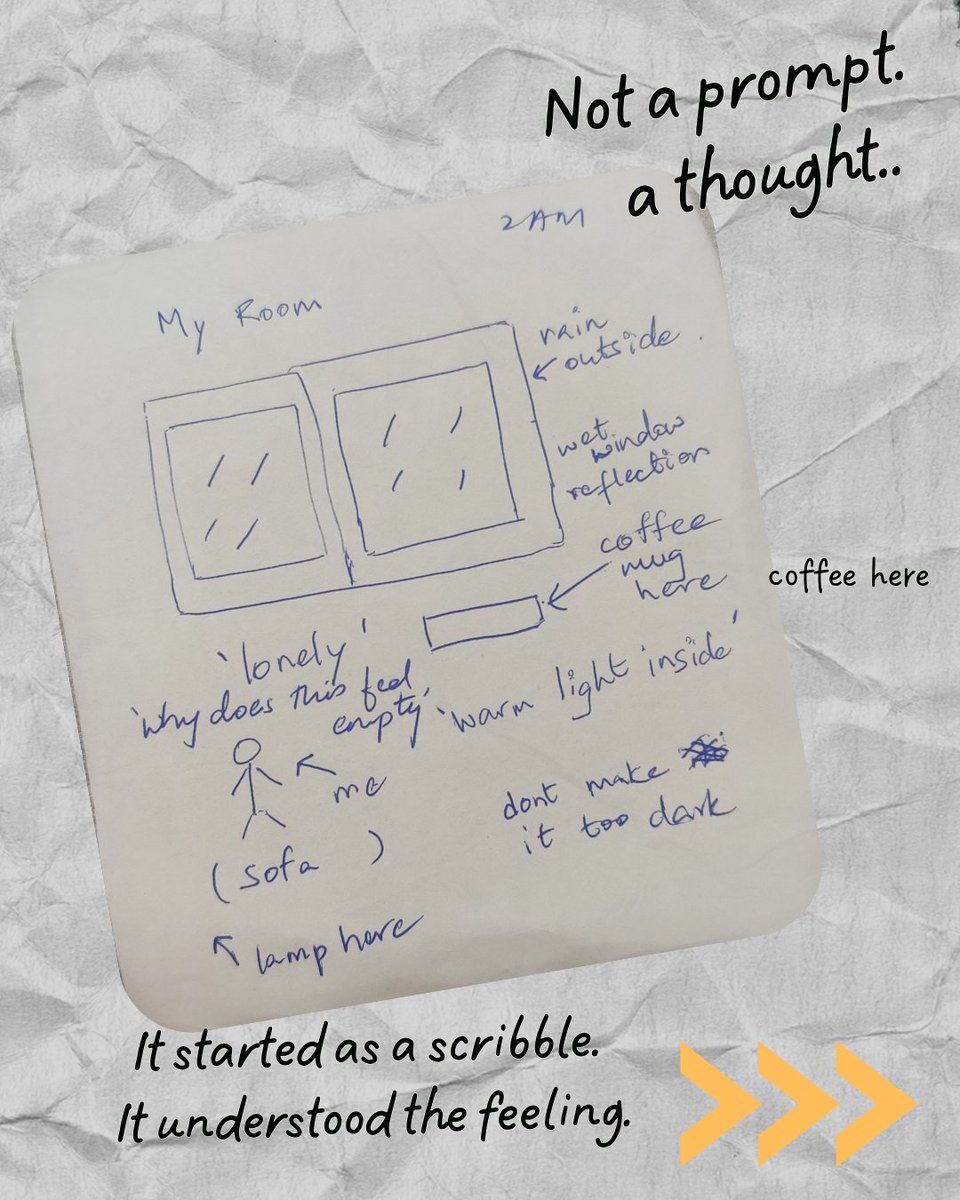 Not a prompt.
a thought..
2 AM
My Room
rain
outside.
wet
window
reflection
coffee
mug
here
coffee here
'lonely'
'why does this feel
empty'
'warm light inside'
me
dont make
it too dark
(sofa )
lamp here
It started as a scribble.
It understood the feeling.